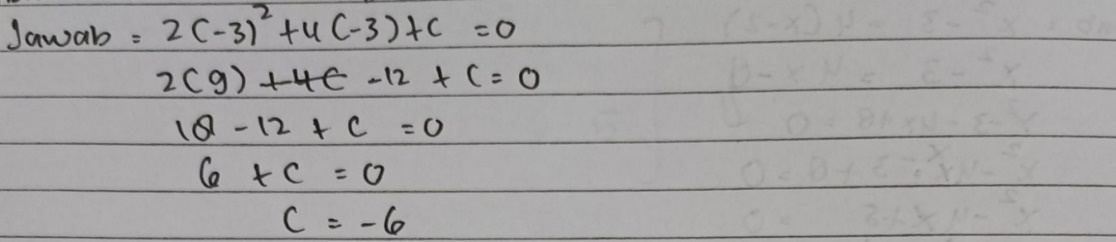 Jawab = 2(-3)² + 4(-3) + C = 0
2(9) -12 + C = 0
18 - 12 + C = 0
6 + C = 0
C = -6